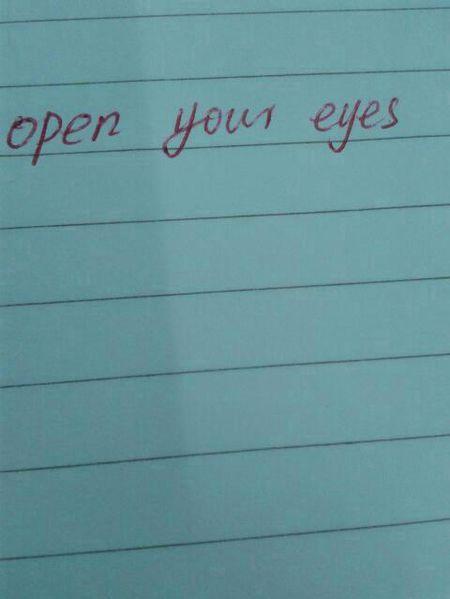 open your eyes